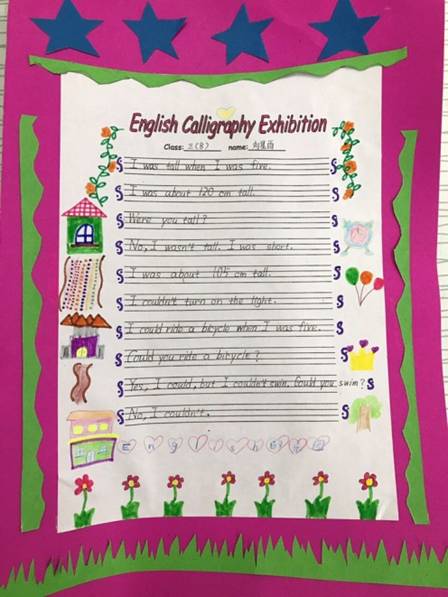 English Calligraphy Exhibition
Class: 三(8) name:
I was tall when I was five.
I was about 120 cm tall.
Were you tall?
No, I wasn't tall. I was short.
I was about 105 cm tall.
I couldn't turn on the light.
I could ride a bicycle when I was five.
Could you ride a bicycle?
Yes, I could, but I couldn't swim. Could you swim?
No, I couldn't.